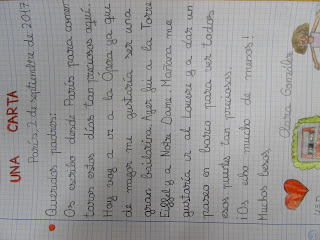 UNA CARTA
París, 2 de septiembre de 2017
Queridos padres:
Os escribo desde París para comen
taros estos días tan preciosos aquí.
Hoy voy a ir a la Ópera ya que
de mayor me gustaría ser una
gran bailarina. Ayer fui a la Torre
Eiffel y a Notre Dame. Mañana me
gustaría ir al Louvre y a dar un
paseo en barco para ver todos
esos puentes tan preciosos.
¡Os echo mucho de menos!
Muchos besos
Clara González